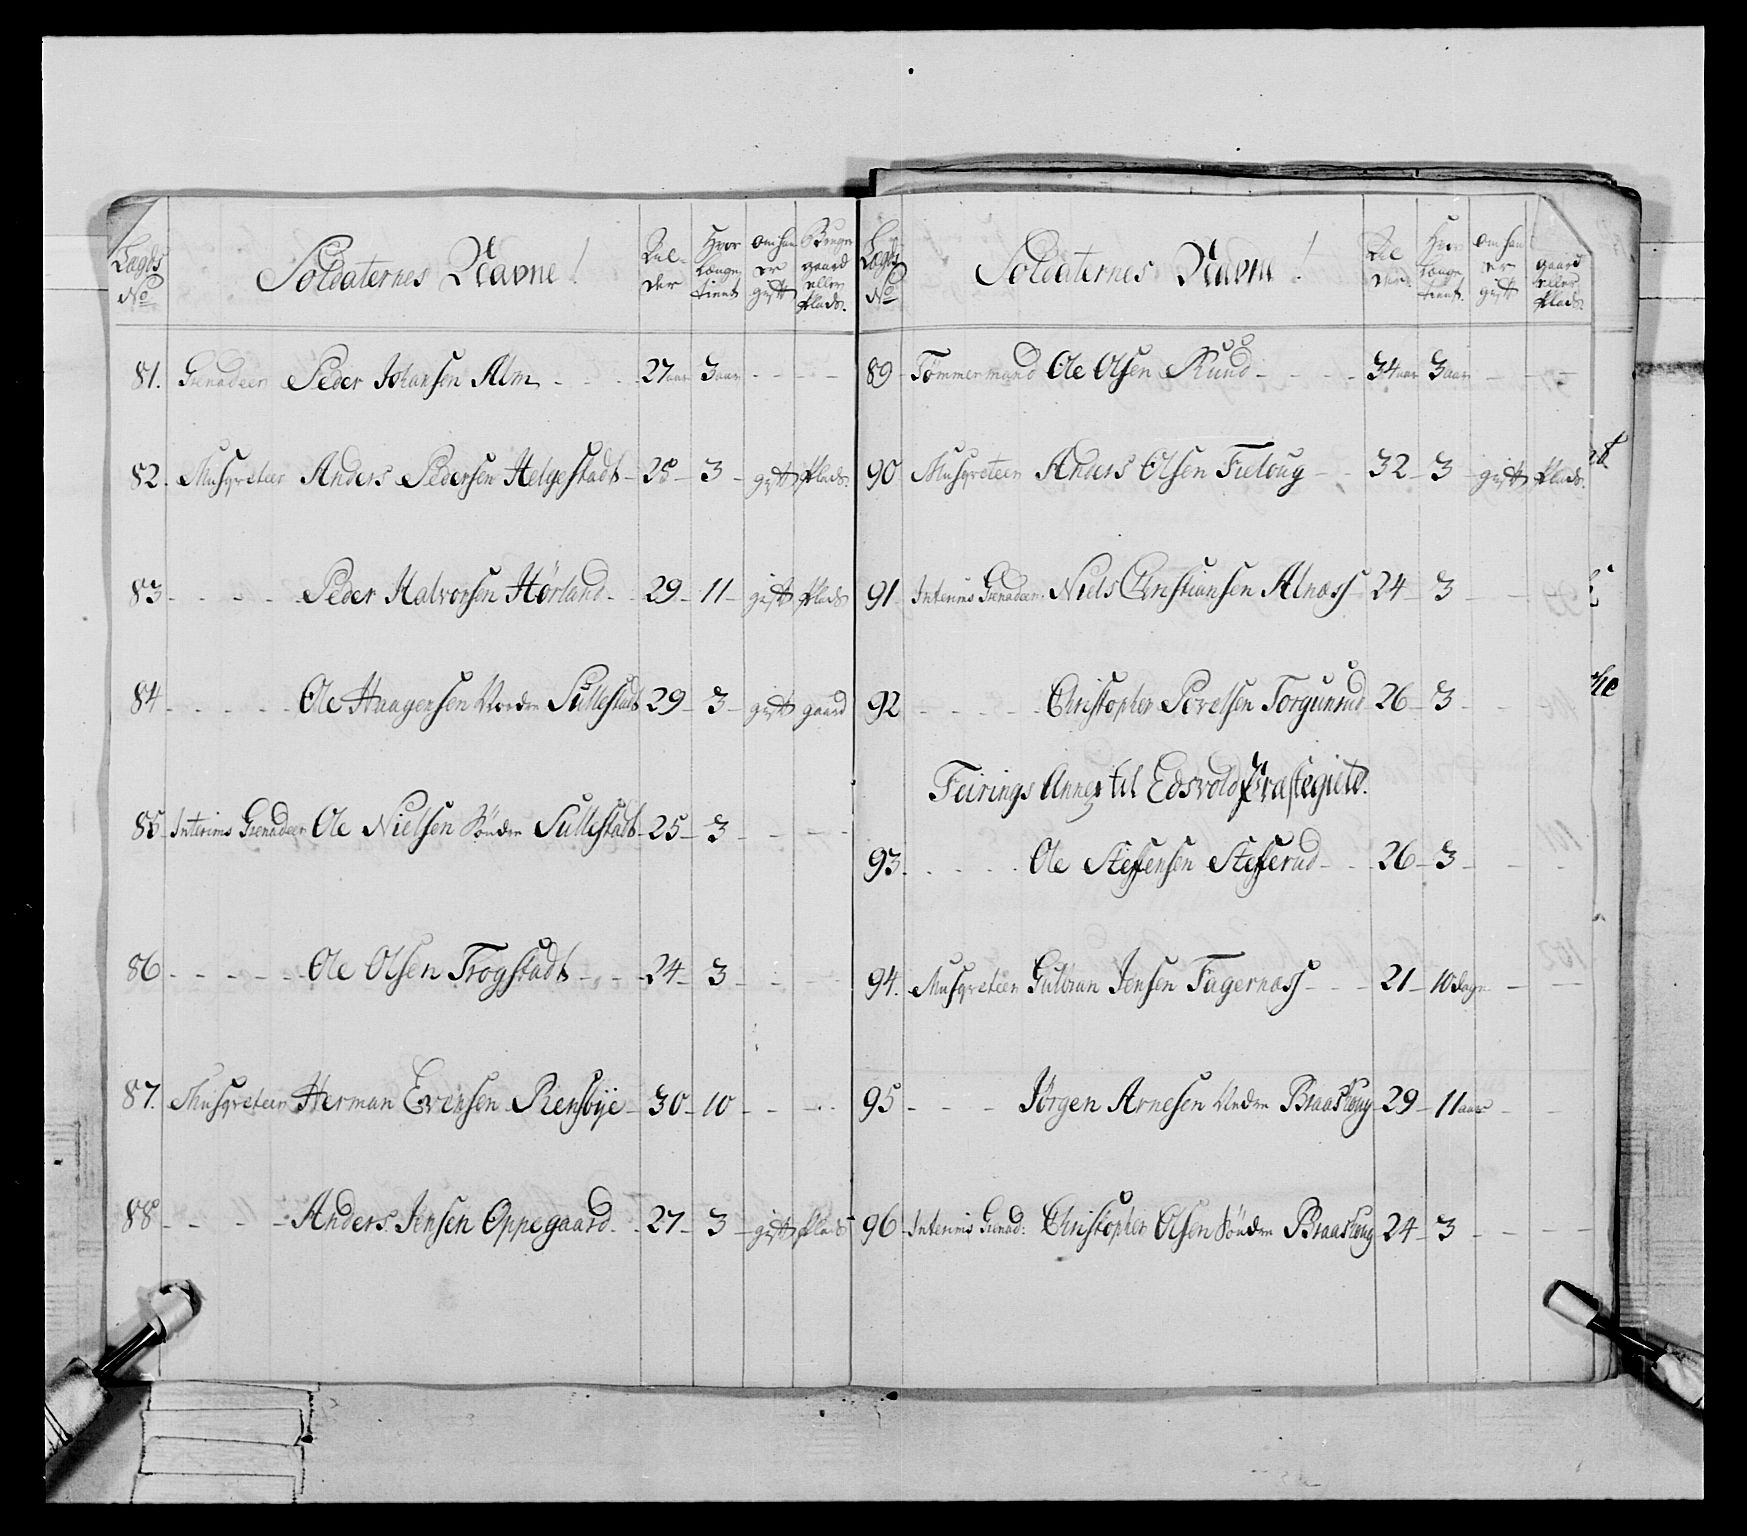 Lægds No
Soldaternes Navne!
Alder
Hvor længe tient
om han er gift
Bruger gaard eller Plads.
81. Grenadeer Peder Johansen Alm - - - 27 aar 3 aar - - - -
82. Musqveteer Anders Pedersen Helgestadt - 25 - 3 - gift Plads.
83 - - - - Peder Halvorsen Hørland - - 29 - 11 - gift Plads
84 - - - - Ole Haagensen Nordre Sullestadt 29 - 3 - gift gaard
85 Interims Grenadeer Ole Nielsen Søndre Sullestadt - 25 - 3 - - - -
86 - - - - Ole Olsen Trogstadt - - - 24 - 3 - - - -
87. Musqveteer Herman Evensen Rensbye - 30 - 10 - - - -
88 - - - - Anders Jensen Oppegaard - - 27 - 3 - gift Plads
Lægds No
Soldaternes Navne!
Alder
Hvor længe tient.
om han er gift
gaard eller Plads.
89 Tømmermand Ole Olsen Ruud - - - - 34 aar 3 aar - - -
90 Musqveteer Anders Olsen - - 32 - 3 - gift Plads.
91 Interims Grenadeer Niels Christiansen Alnæss 24 - 3 - -
92 - - - - Christopher Povelsen Torgunrud 26 - 3 - -
Feirings Annex til Edsvold Præstegield.
93. - - - - Ole Steffensen Stefferud - - 26 - 3 - - -
94. Musqveteer Gulbran Jensen Fagernæss - - - 21 - 10 dage - -
95 - - - Jørgen Arnesen Nedre Braaskoug - 29 - 11 aar - -
96 Interims Grenad: Christopher Olsen Søndre Braaskoug 24 - 3 - - - -